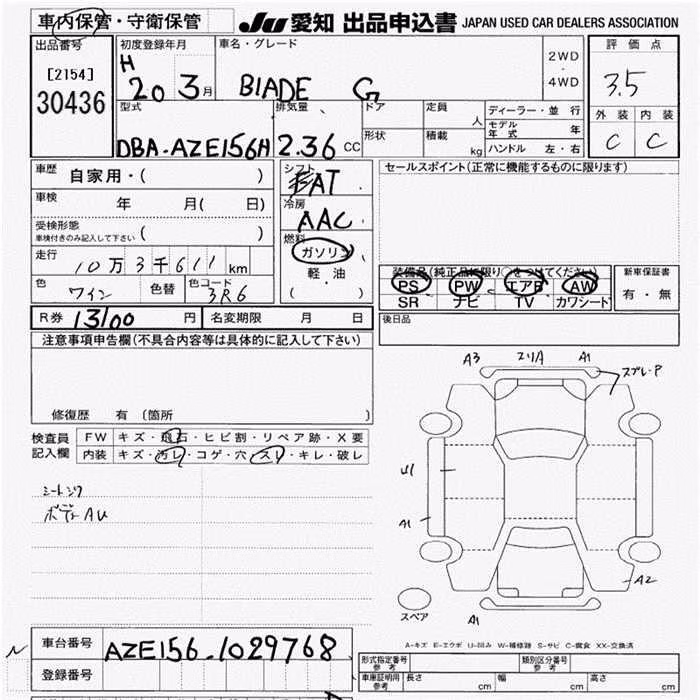 車内保管・守衛保管
JU 愛知 出品申込書 JAPAN USED CAR DEALERS ASSOCIATION
出品番号
[2154]
30436
初度登録年月
H
20 3月
車名・グレード
BLADE G
2WD
・
4WD
評価点
3.5
外装 内装
C C
型式
DBA-AZE156H
排気量
2.36 CC
ドア
定員
人
形状
積載
kg
ディーラー・並行
モデル年式 年
ハンドル 左・右
車歴
自家用・( )
車検 年 月( 日)
受検形態
車検付きのみ記入して下さい ( )
走行
10万3千611 km
色
ワイン
色替
色コード
3R6
シフト
AT
冷房
AAC
燃料
ガソリン
軽油
( )
セールスポイント(正常に機能するものに限ります)
装備品(純正品に限り○をつけてください)
PS PW エアB AW
SR ナビ TV カワシート
新車保証書
有・無
R券 13100 円 名変期限 月 日
後日品
注意事項申告欄(不具合内容等は具体的に記入して下さい)
修復歴 有 (箇所 )
検査員
記入欄
FW キズ・飛石・ヒビ割・リペア跡・X要
内装 キズ・汚レ・コゲ・穴・スレ・キレ・破レ
ボディAU
A3
A1
スプレーP
U1
A1
A2
スペア
A1
A-キズ E-エクボ U-凹み W-補修跡 S-サビ C-腐食 XX-交換済
車台番号 AZE156-1029768
登録番号
形式指定番号
参考
類別区分番号
参考
車庫証明用
参考
長さ cm
幅 cm
高さ cm